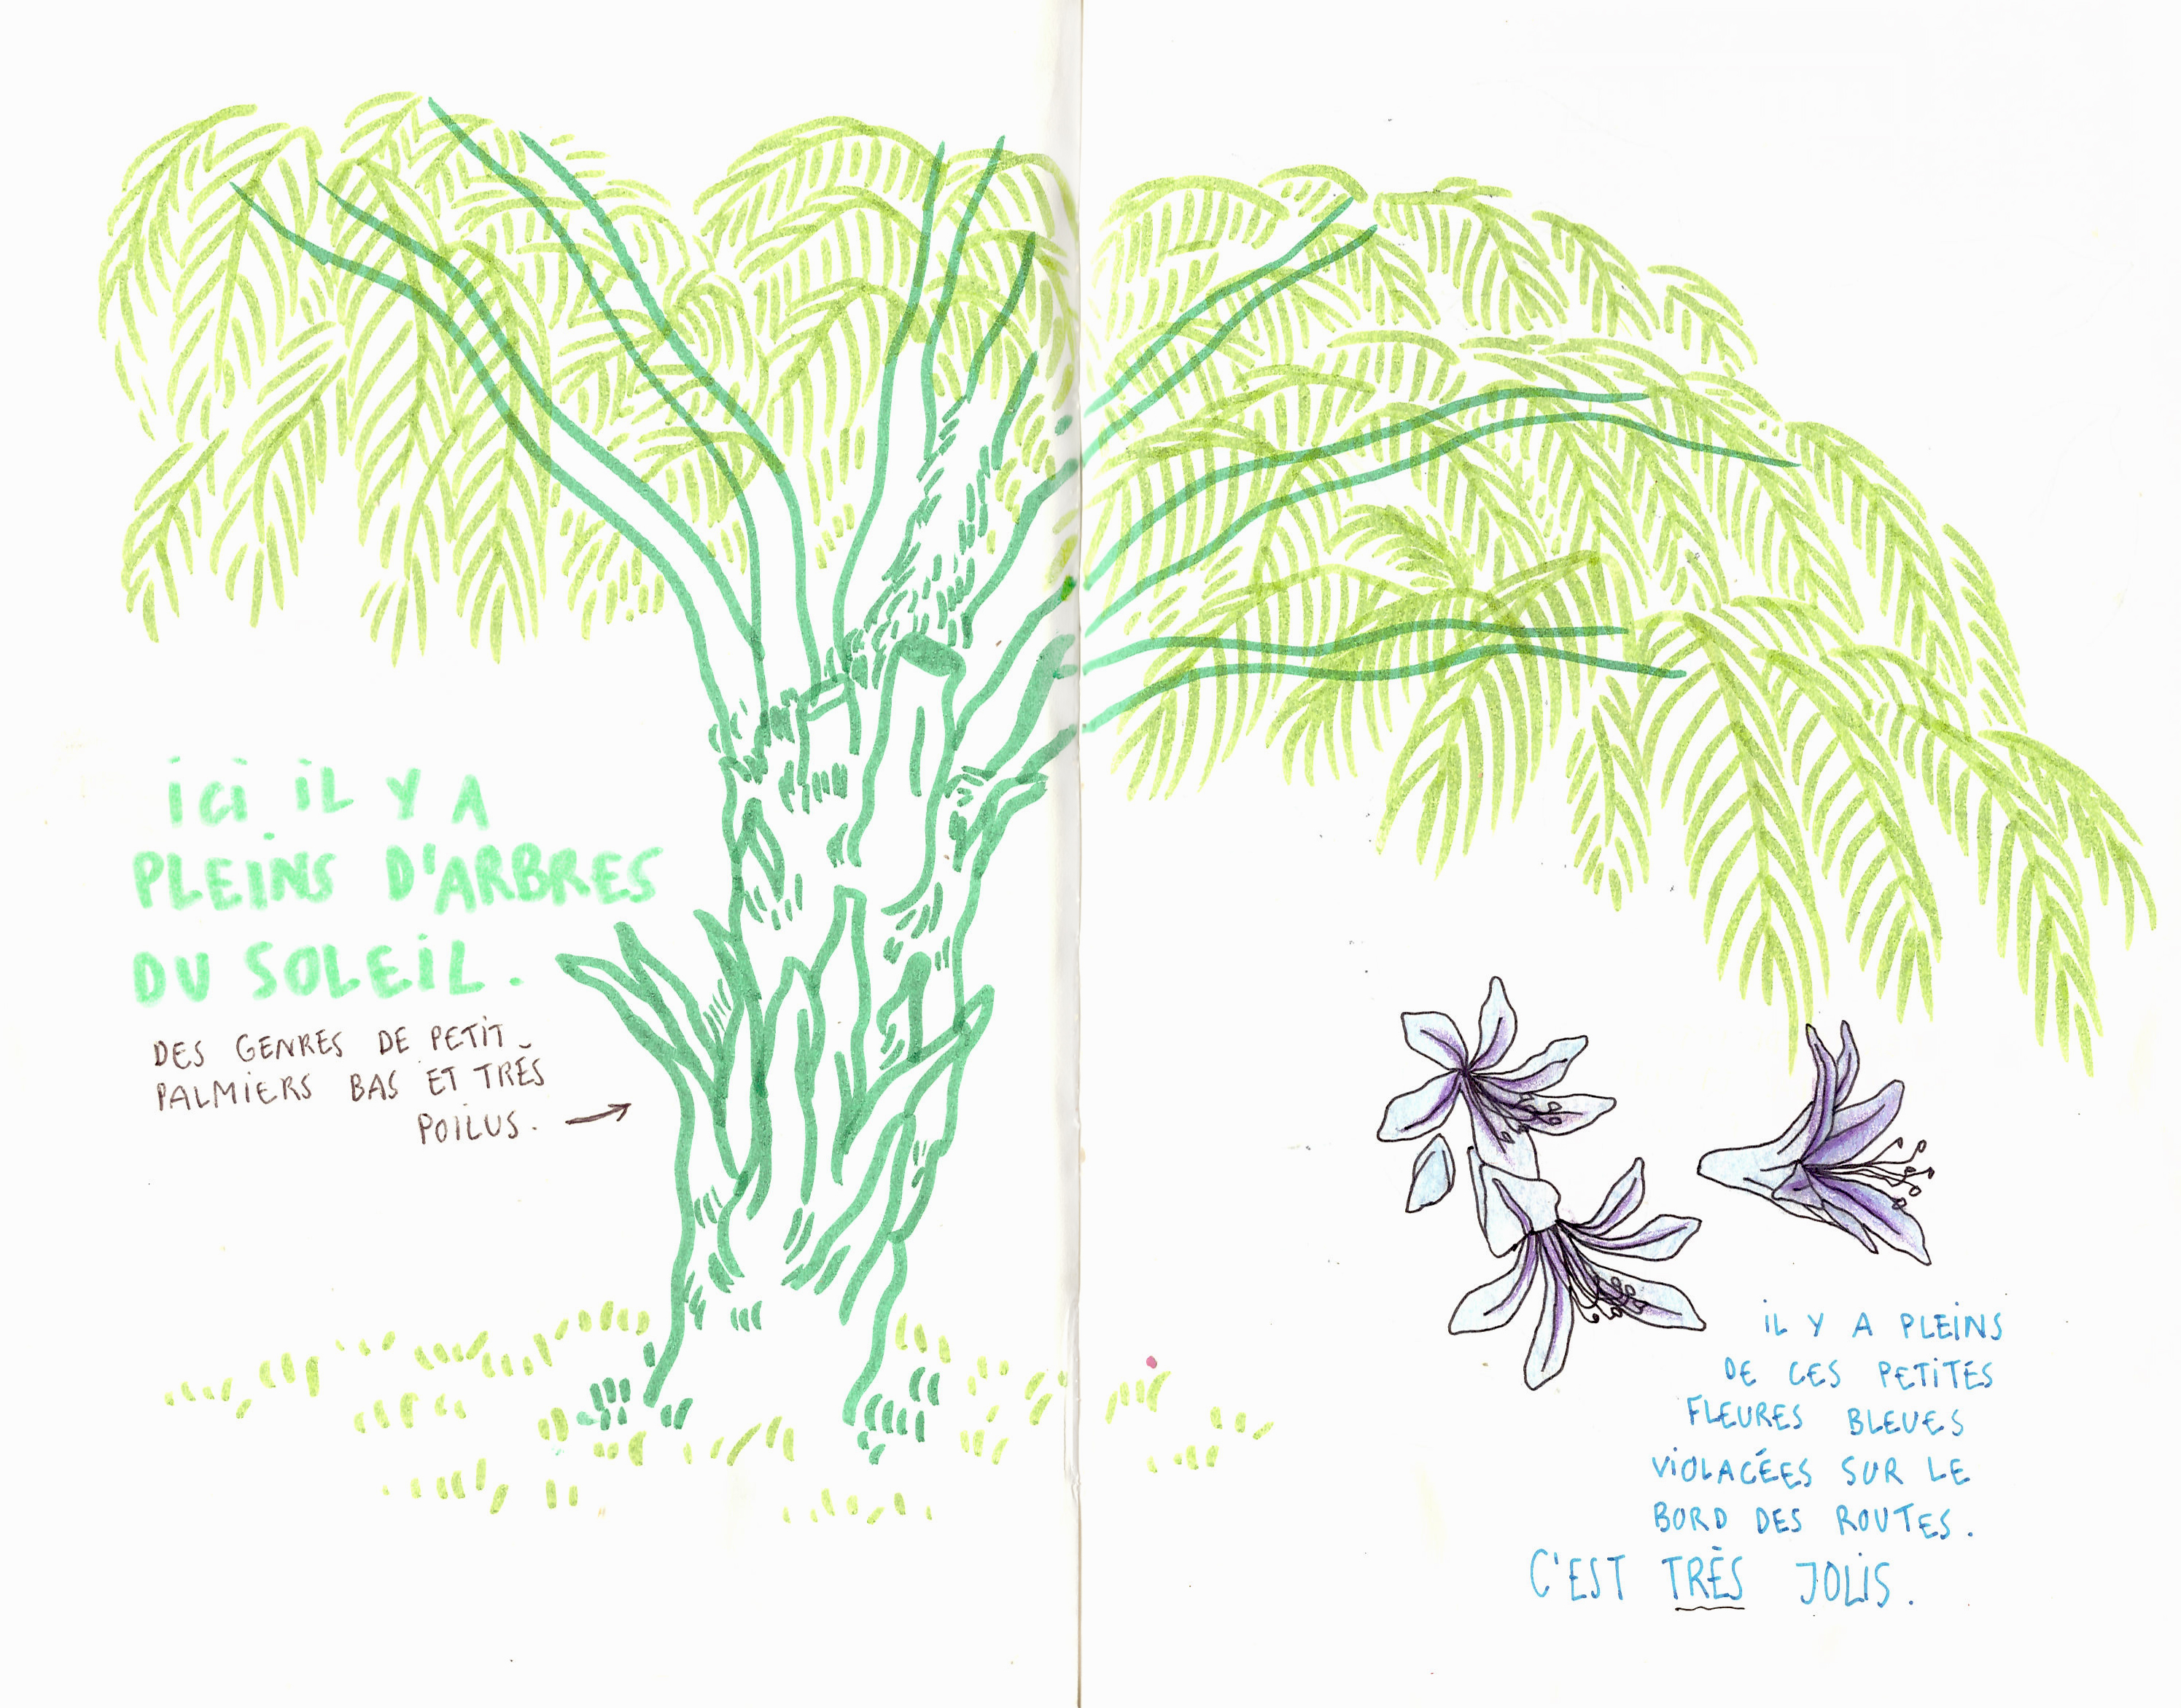 ici iL Y A
PLEiNS D'ARBRES
DU SOLEiL.
DES GENRES DE PETiT
PALMiERS BAS ET TRÈS
POiLUS. →
iL Y A PLEiNS
DE CES PETiTES
FLEURES BLEUES
ViOLACÉES SUR LE
BORD DES ROUTES.
C'EST TRÈS JOLiS.